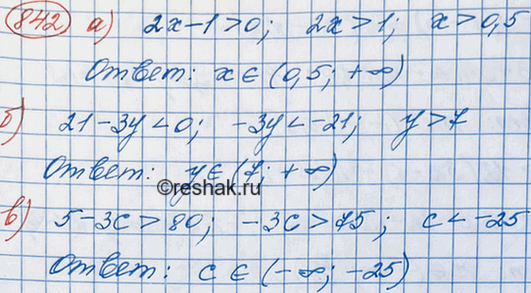 842 а) 2x-1>0; 2x>1; x>0,5
Ответ: x∈(0,5; +∞)
б) 21-3y<0; -3y<-21; y>7
Ответ: y∈(7; +∞)
©reshak.ru
в) 5-3c>80; -3c>75; c<-25
Ответ: c∈(-∞; -25)